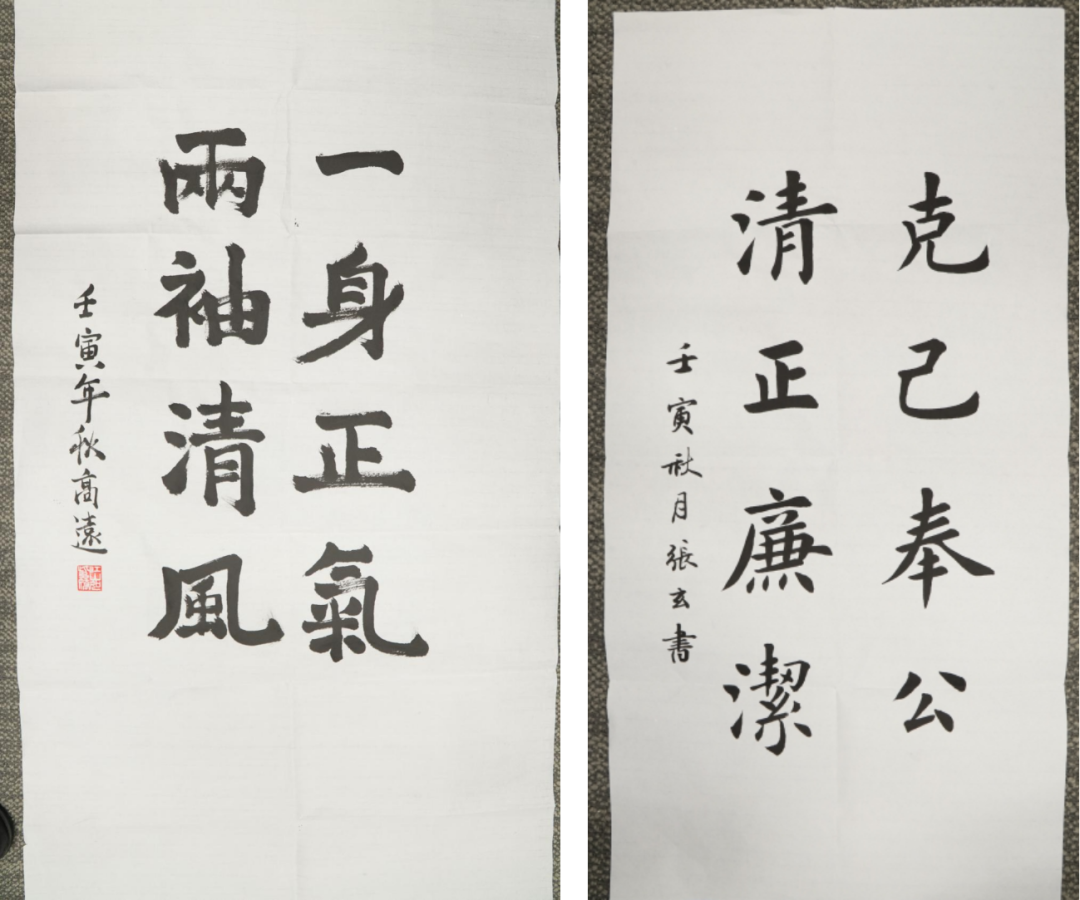 一身正氣
兩袖清風
壬寅年秋高遠
克己奉公
清正廉潔
壬寅秋月張玄書